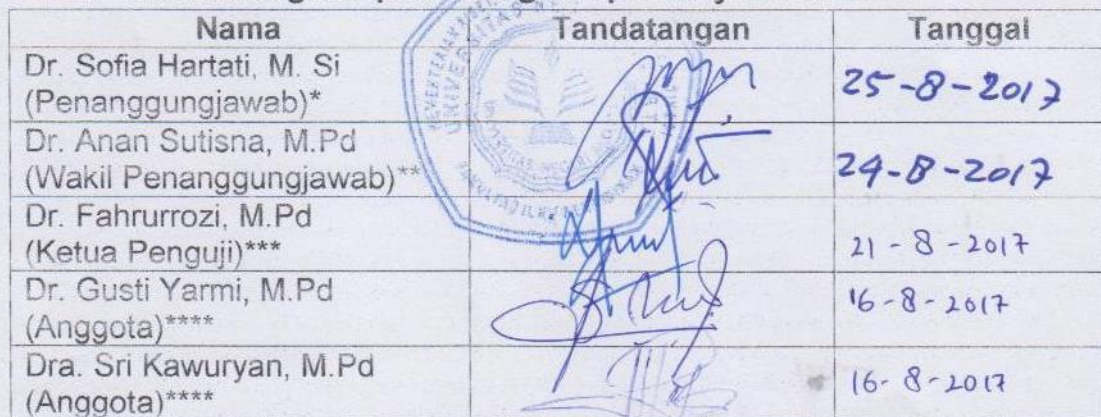 Nama Tandatangan Tanggal
Dr. Sofia Hartati, M. Si
(Penanggungjawab)* 25-8-2017
Dr. Anan Sutisna, M.Pd
(Wakil Penanggungjawab)** 24-8-2017
Dr. Fahrurrozi, M.Pd
(Ketua Penguji)*** 21-8-2017
Dr. Gusti Yarmi, M.Pd
(Anggota)**** 16-8-2017
Dra. Sri Kawuryan, M.Pd
(Anggota)**** 16-8-2017